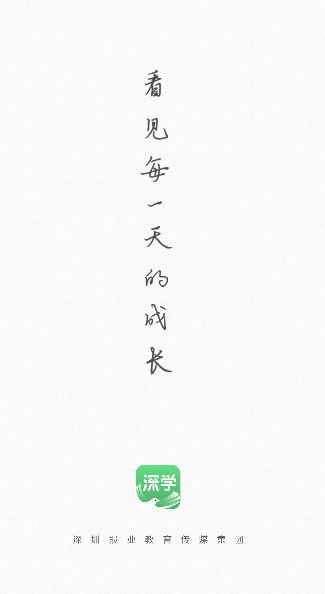 看见每一天的成长
深学
深圳报业教育传媒集团